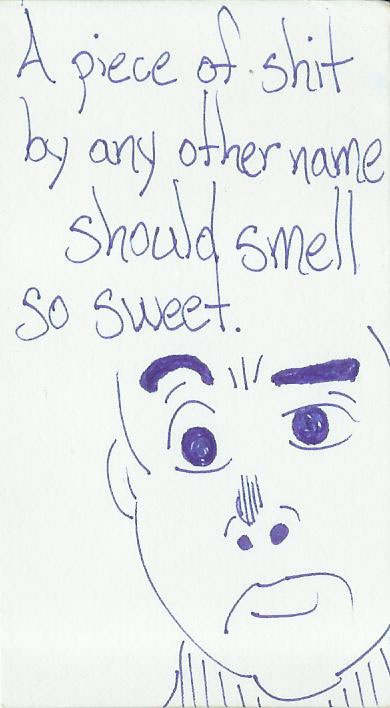 A piece of shit
by any other name
should smell
so sweet.